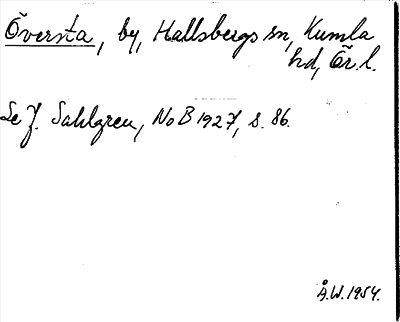 Översta, by, Hallsbergs sn, Kumla
hd, Ör. l.
Se J. Sahlgren, NoB 1927, s. 86.
Å.W. 1954.